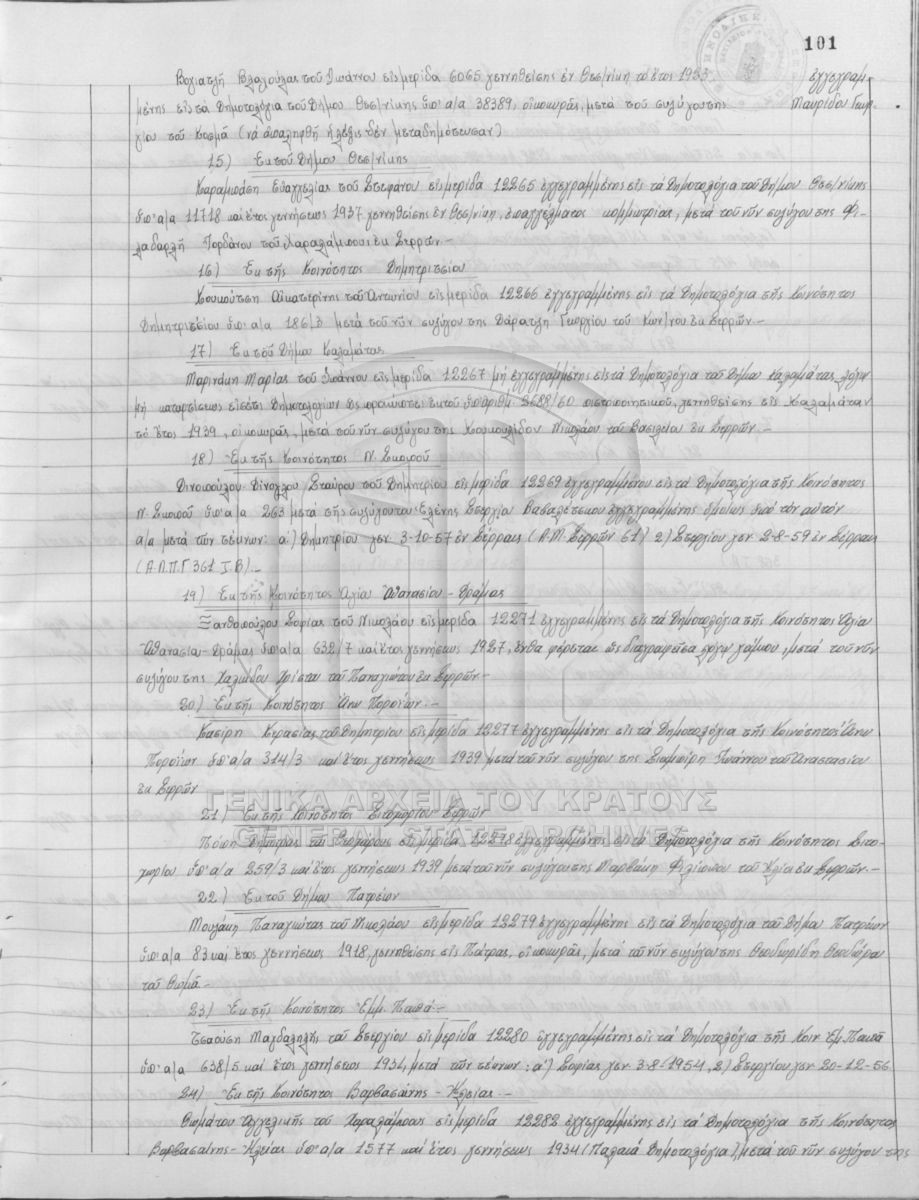 101
Βογιατζή Βλαχούλας τοῦ Ἰωάννου εἰς μερίδα 6065 γεννηθείσης ἐν Θεσ/νίκῃ τὸ ἔτος 1933, ἐγγεγραμ-
μένης εἰς τὰ Δημοτολόγια τοῦ Δήμου Θεσ/νίκης ὑπ' α/α 38389, οἰκοκυρᾶς, μετὰ τοῦ συζύγου της Μαυρίδου Γεωρ-
γίου τοῦ Κοσμᾶ (νὰ ἀπαλειφθῇ ἡ λέξις δὲν μεταδημότευσαν)
15) Ἐκ τοῦ Δήμου Θεσ/νίκης
Καραμπάση Εὐαγγελίας τοῦ Στεφάνου εἰς μερίδα 12265 ἐγγεγραμμένης εἰς τὰ Δημοτολόγια τοῦ Δήμου Θεσ/νίκης
ὑπ' α/α 11718 καὶ ἔτος γεννήσεως 1937 γεννηθείσης ἐν Θεσ/νίκῃ, ἐπαγγέλματος κομμωτρίας, μετὰ τοῦ νῦν συζύγου της
Ἰορδάνου τοῦ Χαραλάμπους ἐκ Σερρῶν.-
16) Ἐκ τῆς Κοινότητος Δημητριτσίου
Κουκούτση Αἰκατερίνης τοῦ Ἀντωνίου εἰς μερίδα 12266 ἐγγεγραμμένης εἰς τὰ Δημοτολόγια τῆς Κοινότητος
Δημητριτσίου ὑπ' α/α 186/3 μετὰ τοῦ νῦν συζύγου της Γεωργίου τοῦ Κων/νου ἐκ Σερρῶν.-
17) Ἐκ τοῦ Δήμου Καλαμάτας
Μαρινάκη Μαρίας τοῦ Ἰωάννου εἰς μερίδα 12267 μὴ ἐγγεγραμμένης εἰς τὰ Δημοτολόγια τοῦ Δήμου Καλαμάτας λόγῳ
μὴ καταρτίσεως εἰσέτι Δημοτολογίων ὡς προκύπτει ἐκ τοῦ ὑπ' ἀριθμ. 2688/60 πιστοποιητικοῦ, γεννηθείσης εἰς Καλαμάταν
τὸ ἔτος 1939, οἰκοκυρᾶς, μετὰ τοῦ νῦν συζύγου της Νικολάου τοῦ Βασιλείου ἐκ Σερρῶν.-
18) Ἐκ τῆς Κοινότητος Ν. Σκοποῦ
Σταύρου τοῦ Δημητρίου εἰς μερίδα 12269 ἐγγεγραμμένου εἰς τὰ Δημοτολόγια τῆς Κοινότητος
Ν. Σκοποῦ ὑπ' α/α 263 μετὰ τῆς συζύγου του Ἑλένης Στεργίου ἐγγεγραμμένης ὁμοίως ὑπὸ τὸν αὐτὸν
α/α μετὰ τῶν τέκνων: α) Δημητρίου γεν. 3-10-57 ἐν Σέρραις (Α.Μ. Σερρῶν 61) 2) Στεργίου γεν. 2-8-59 ἐν Σέρραις
(Λ.Π.Γ 361 Ι.Β).-
19) Ἐκ τῆς Κοινότητος Ἁγίου Ἀθανασίου - Δράμας
Ξανθοπούλου Σοφίας τοῦ Νικολάου εἰς μερίδα 12271 ἐγγεγραμμένης εἰς τὰ Δημοτολόγια τῆς Κοινότητος Ἁγίου
Ἀθανασίου - Δράμας ὑπ' α/α 632/7 καὶ ἔτος γεννήσεως 1927, ἔνθα φέρεται ὡς διαγραφεῖσα λόγῳ γάμου, μετὰ τοῦ νῦν
συζύγου της Χρίστου τοῦ Παναγιώτου ἐκ Σερρῶν.-
20) Ἐκ τῆς Κοινότητος Ἄνω Ποροΐων.-
Κασίρη Κερασίας τοῦ Δημητρίου εἰς μερίδα 12277 ἐγγεγραμμένης εἰς τὰ Δημοτολόγια τῆς Κοινότητος Ἄνω
Ποροΐων ὑπ' α/α 314/3 καὶ ἔτος γεννήσεως 1939 μετὰ τοῦ νῦν συζύγου της Ἰωάννου τοῦ Ἀναστασίου
ἐκ Σερρῶν
21) Ἐκ τῆς Κοινότητος Σιτοχωρίου - Σερρῶν
Δήμητρας τοῦ Θεολόγου εἰς μερίδα 12278 ἐγγεγραμμένης εἰς τὰ Δημοτολόγια τῆς Κοινότητος Σιτο-
χωρίου ὑπ' α/α 259/3 καὶ ἔτος γεννήσεως 1939 μετὰ τοῦ νῦν συζύγου της Φιλίππου τοῦ Ἠλία ἐκ Σερρῶν.-
22) Ἐκ τοῦ Δήμου Πατρέων
Μουζάκη Παναγιώτας τοῦ Νικολάου εἰς μερίδα 12279 ἐγγεγραμμένης εἰς τὰ Δημοτολόγια τοῦ Δήμου Πατρέων
ὑπ' α/α 83 καὶ ἔτος γεννήσεως 1918, γεννηθείσης εἰς Πάτρας, οἰκοκυρᾶς, μετὰ τοῦ νῦν συζύγου της Θεοδωρίδη Θεοδώρου
τοῦ Θωμᾶ.-
23) Ἐκ τῆς Κοινότητος Ἐμμ. Παπᾶ.-
Τσαούση Μαγδαληνῆς τοῦ Στεργίου εἰς μερίδα 12280 ἐγγεγραμμένης εἰς τὰ Δημοτολόγια τῆς Κοιν. Ἐμ. Παπᾶ
ὑπ' α/α 638/5 καὶ ἔτος γεννήσεως 1934, μετὰ τῶν τέκνων: α) Σοφίας γεν. 3-8-1954, 2) Στεργίου γεν. 20-12-56
24) Ἐκ τῆς Κοινότητος Βαρβασαίνης - Ἠλείας.-
Θωμάτου Ἀγγελικῆς τοῦ Χαραλάμπους εἰς μερίδα 12282 ἐγγεγραμμένης εἰς τὰ Δημοτολόγια τῆς Κοινότητος
Βαρβασαίνης - Ἠλείας ὑπ' α/α 1577 καὶ ἔτος γεννήσεως 1934 (Παλαιὰ Δημοτολόγια), μετὰ τοῦ νῦν συζύγου της
ΓΕΝΙΚΑ ΑΡΧΕΙΑ ΤΟΥ ΚΡΑΤΟΥΣ
GENERAL STATE ARCHIVES